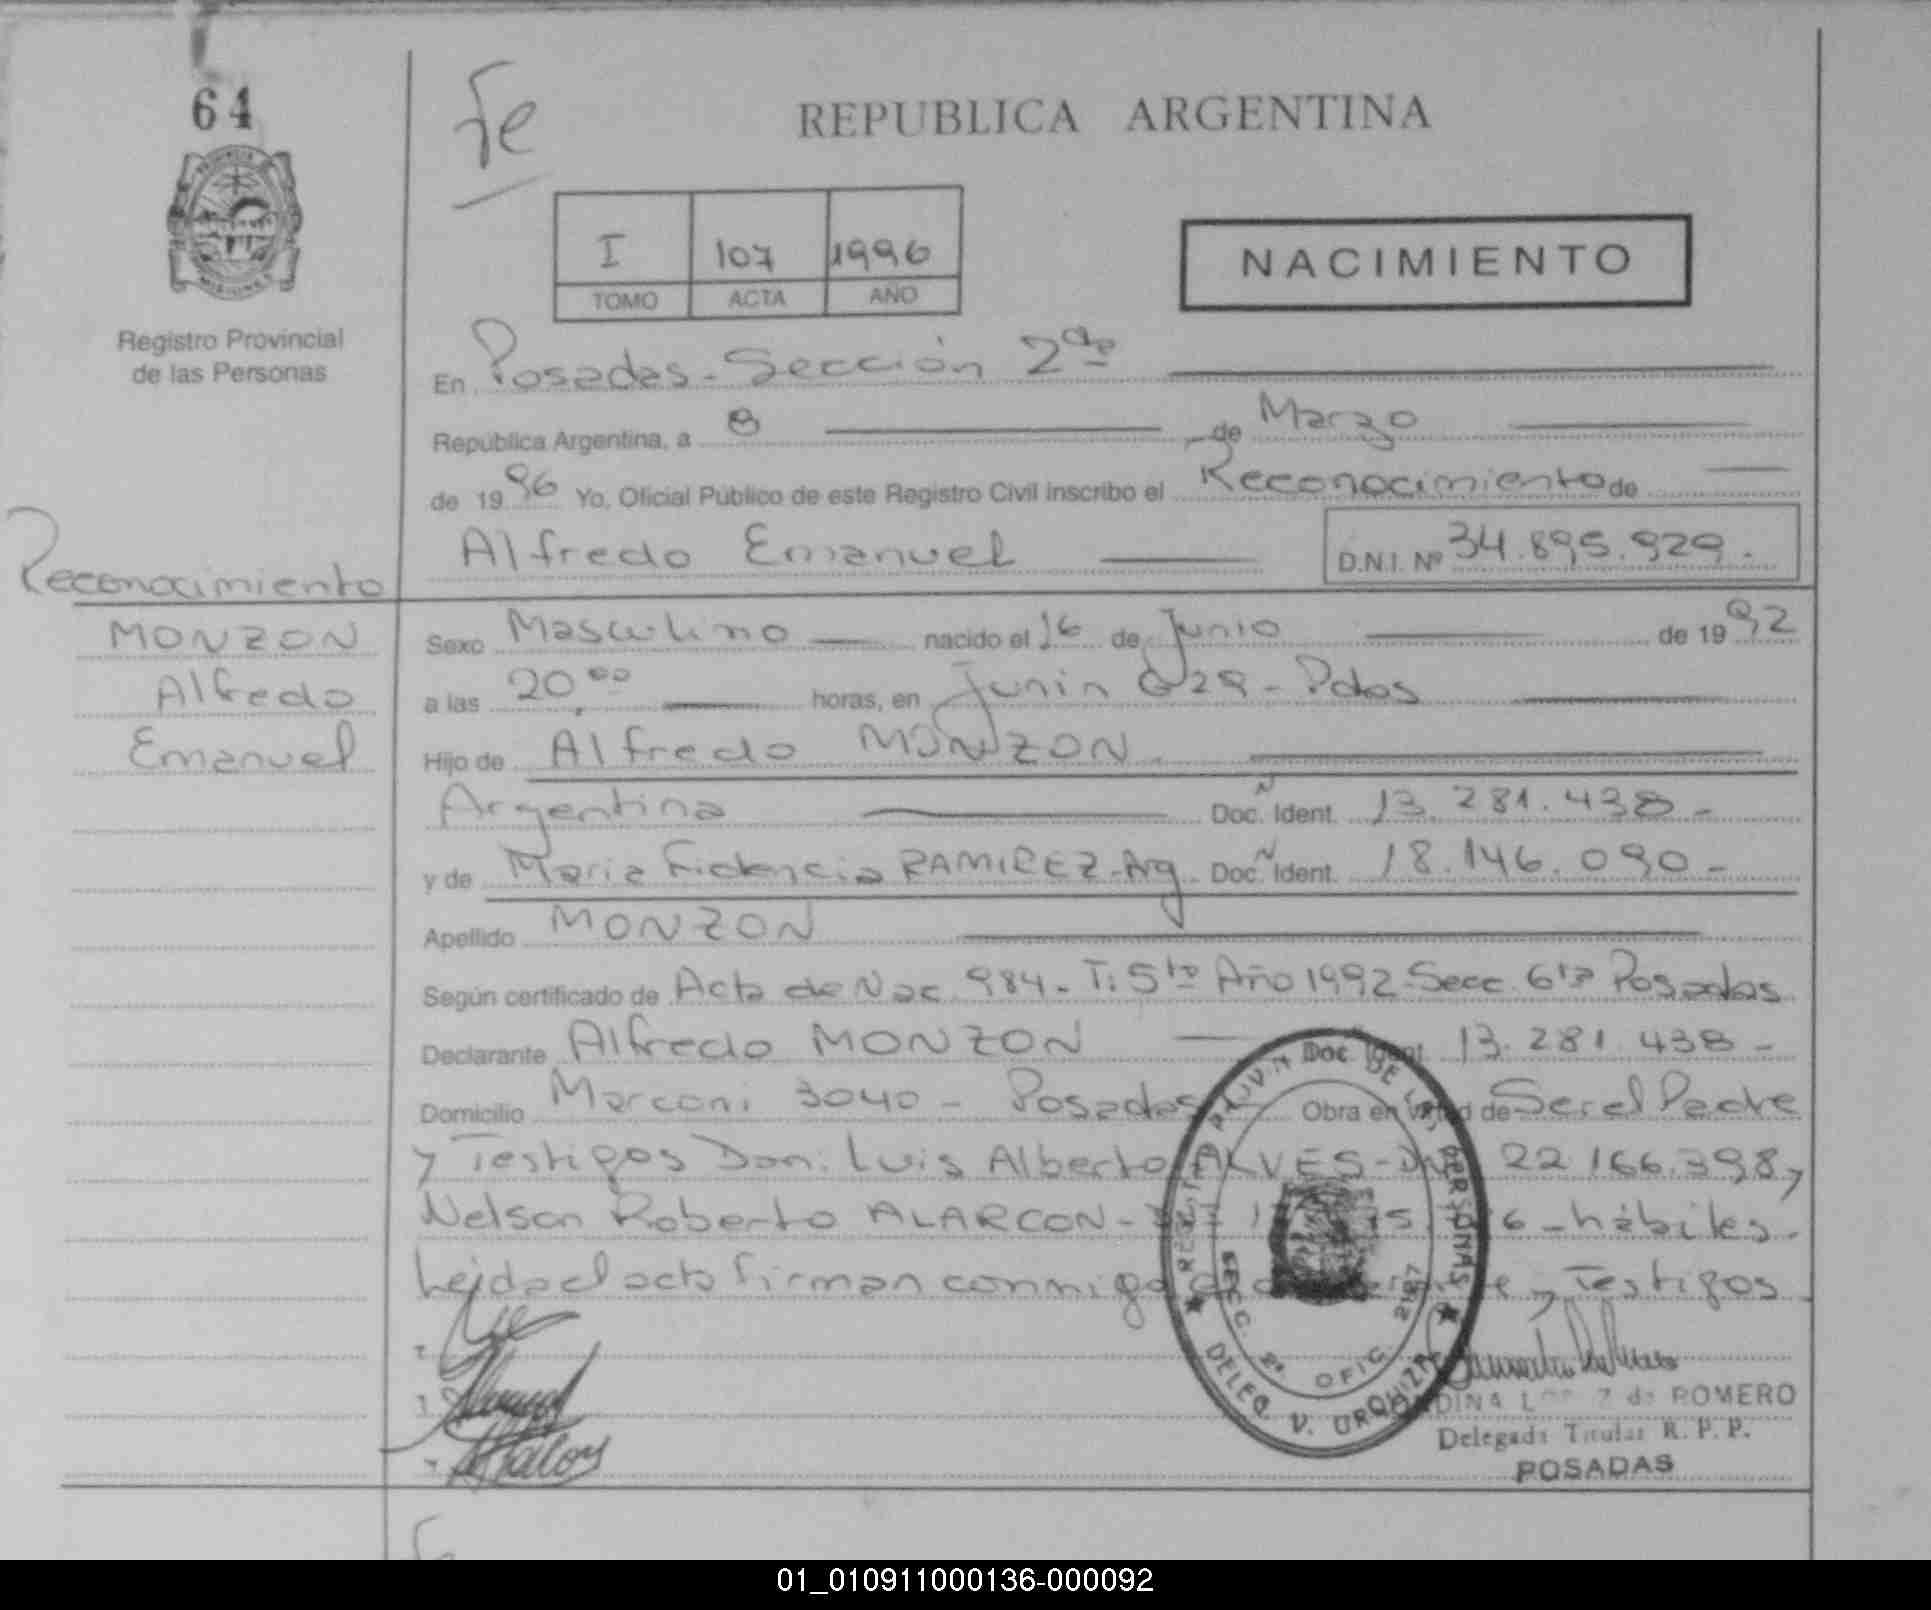 64
Fe
REPUBLICA ARGENTINA
I 107 1996
TOMO ACTA AÑO
NACIMIENTO
Registro Provincial
de las Personas
En Posadas - Sección 2da
República Argentina, a 8 de Marzo
de 1996 Yo, Oficial Público de este Registro Civil inscribo el Reconocimiento de
Alfredo Emanuel D.N.I. Nº 34.895.929.
Reconocimiento
MONZON
Alfredo
Emanuel
Sexo Masculino nacido el 16 de Junio de 1992
a las 20,00 horas, en Junin 629 - Pdas
Hijo de Alfredo MONZON
Argentina Doc. Ident. 13.281.438-
y de Maria Fidencia RAMIREZ-Arg Doc. Ident. 18.146.090-
Apellido MONZON
Según certificado de Acta de Nac. 984- T: 5to Año 1992-Secc. 6ta Posadas
Declarante Alfredo MONZON Doc Ident. 13.281.438-
Domicilio Marconi 3040 - Posadas Obra en virtud de Ser el Padre
y Testigos Don: Luis Alberto ALVES-DNI 22.166.398,
Nelson Roberto ALARCON- hábiles.
Leida el acta firman conmigo y Testigos
REGISTRO PROVIN DE LAS PERSONAS
SECC. 2ª OFIC. 2187
DELEG. V. URQUIZA
de ROMERO
Delegada Titular R. P. P.
POSADAS
01_010911000136-000092